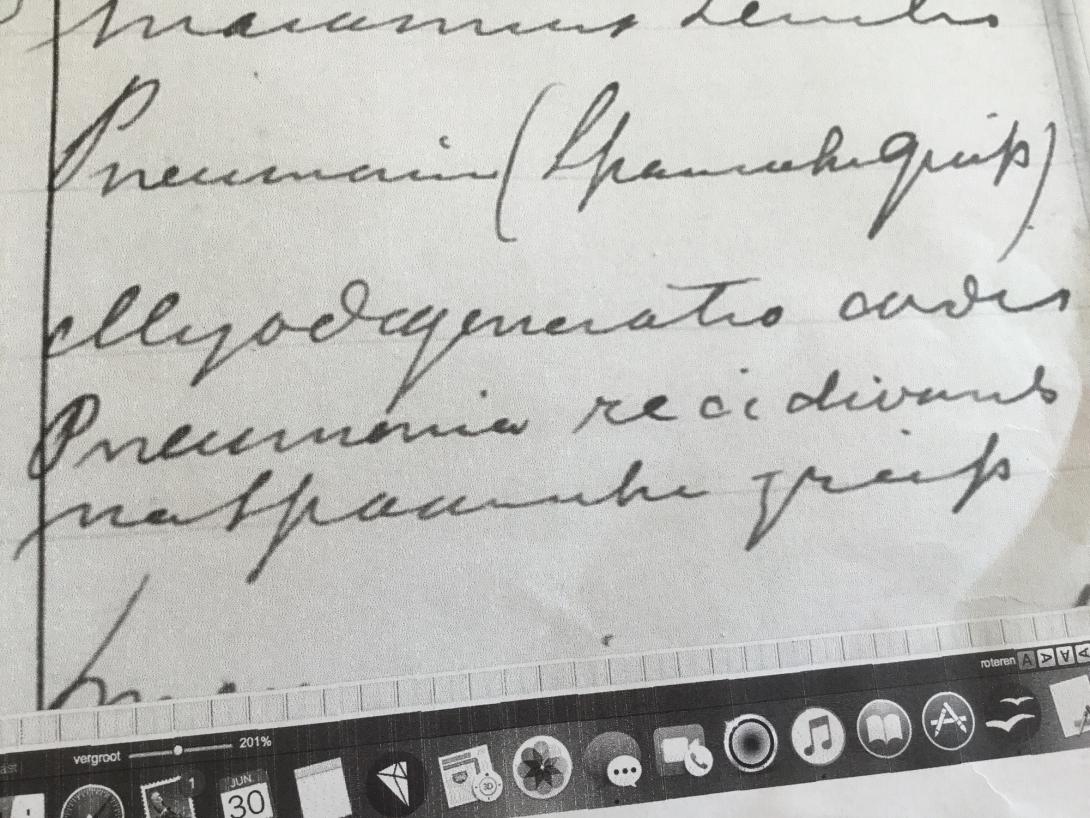 Marasmus senilis
Pneumonie (Spaansche griep)
Myodegeneratio cordis
Pneumonia recidivans
na Spaansche griep
roteren A A A A
vergroot 201%
1
JUN.
30
3D